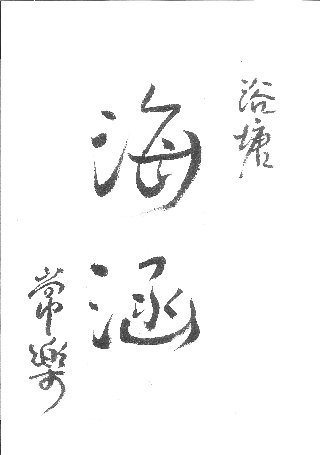 浴塘
海涵
常樂